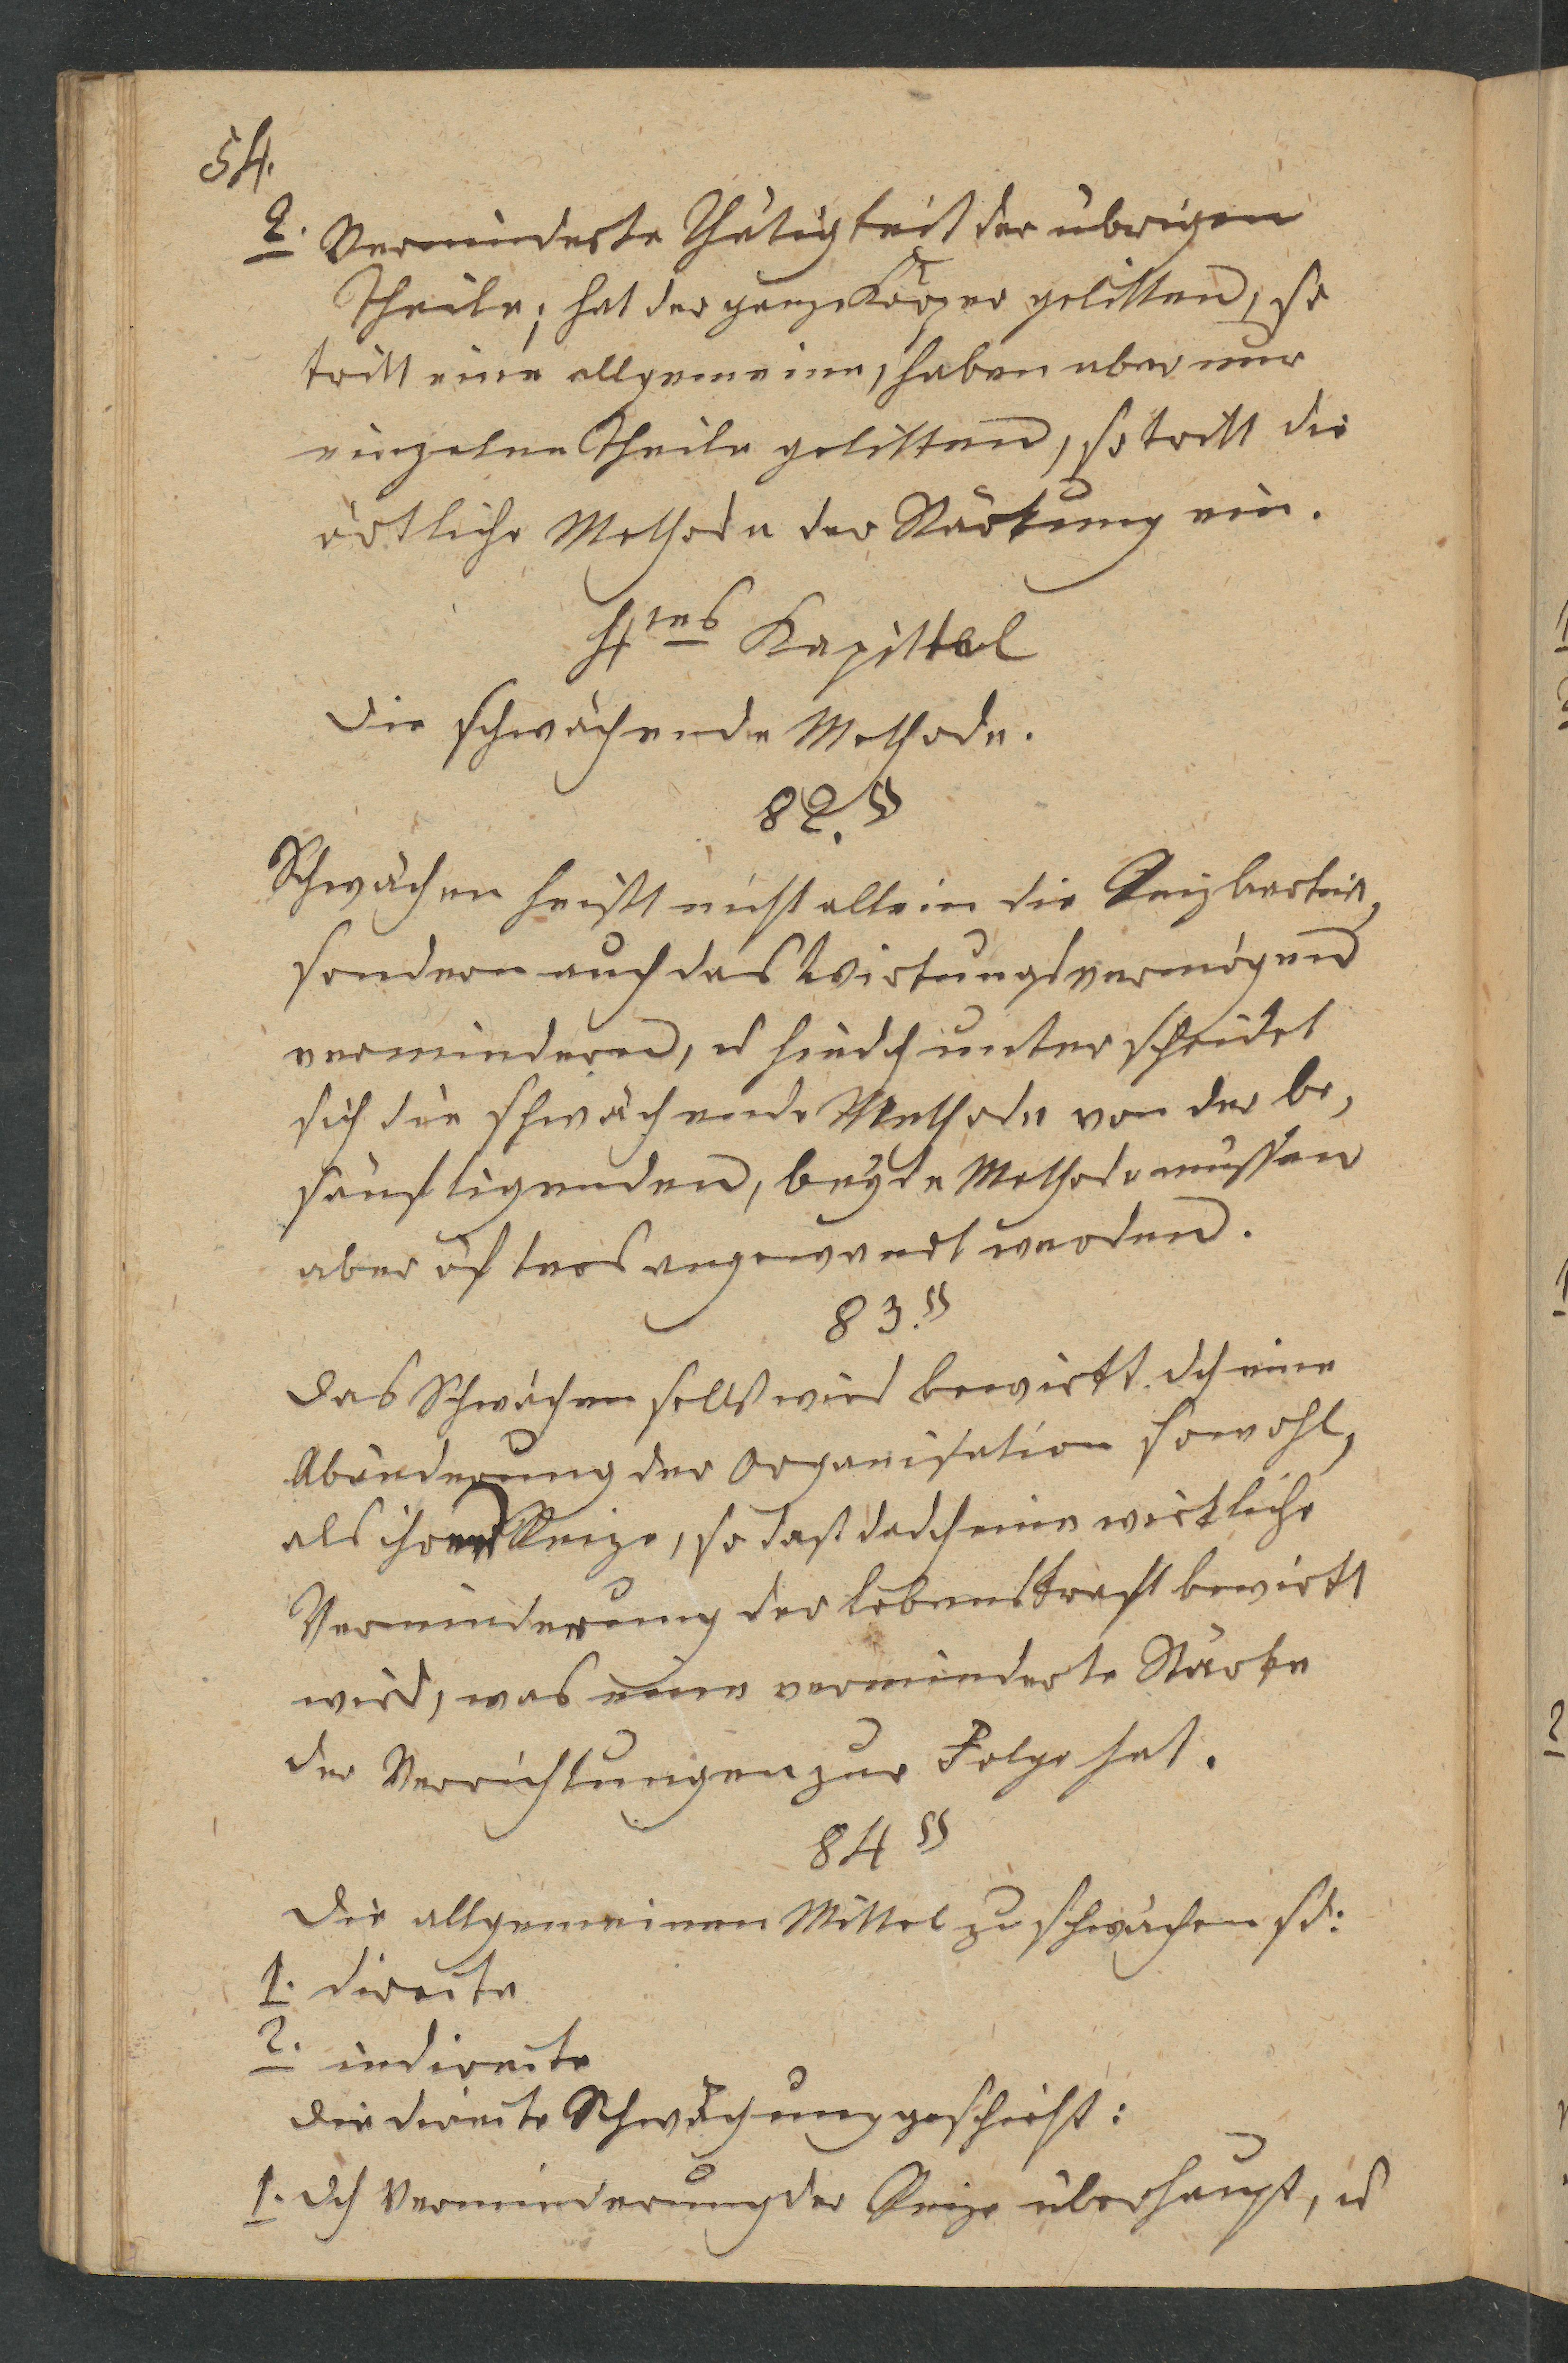 54.
2. Verminderte Thätigkeit der übrigen
Theile; hat der ganze Körper gelitten, so
tritt eine allgemeine, haben aber nur
einzelne Theile gelitten, so tritt die
örtliche Methode der Stärkung ein.
4tes Kapittel
Die schwächende Methode.
82. §
Schwächen heißt nicht allein die Reizbarkeit,
sondern auch das Wirkungsvermögen
vermindern, u hiedch unterscheidet
sich die schwächende Methode von der be,
sänftigenden, beyde Methode müssen
aber öfters angewandt werden.
83. §
Das Schwächen selbst wird bewirkt dch eine
Abänderung der Organisation sowohl,
als ihrer Reize, so daß dadch eine wirkliche
Verminderung der Lebenskraft bewirkt
wird, was eine verminderte Stärke
der Verrichtungen zur Folge hat.
84 §
Die allgemeinen Mittel zu schwächen sd:
1. directe
2. indirecte
Die directe Schwächung geschieht:
1. dch Verminderung der Reize überhaupt, u